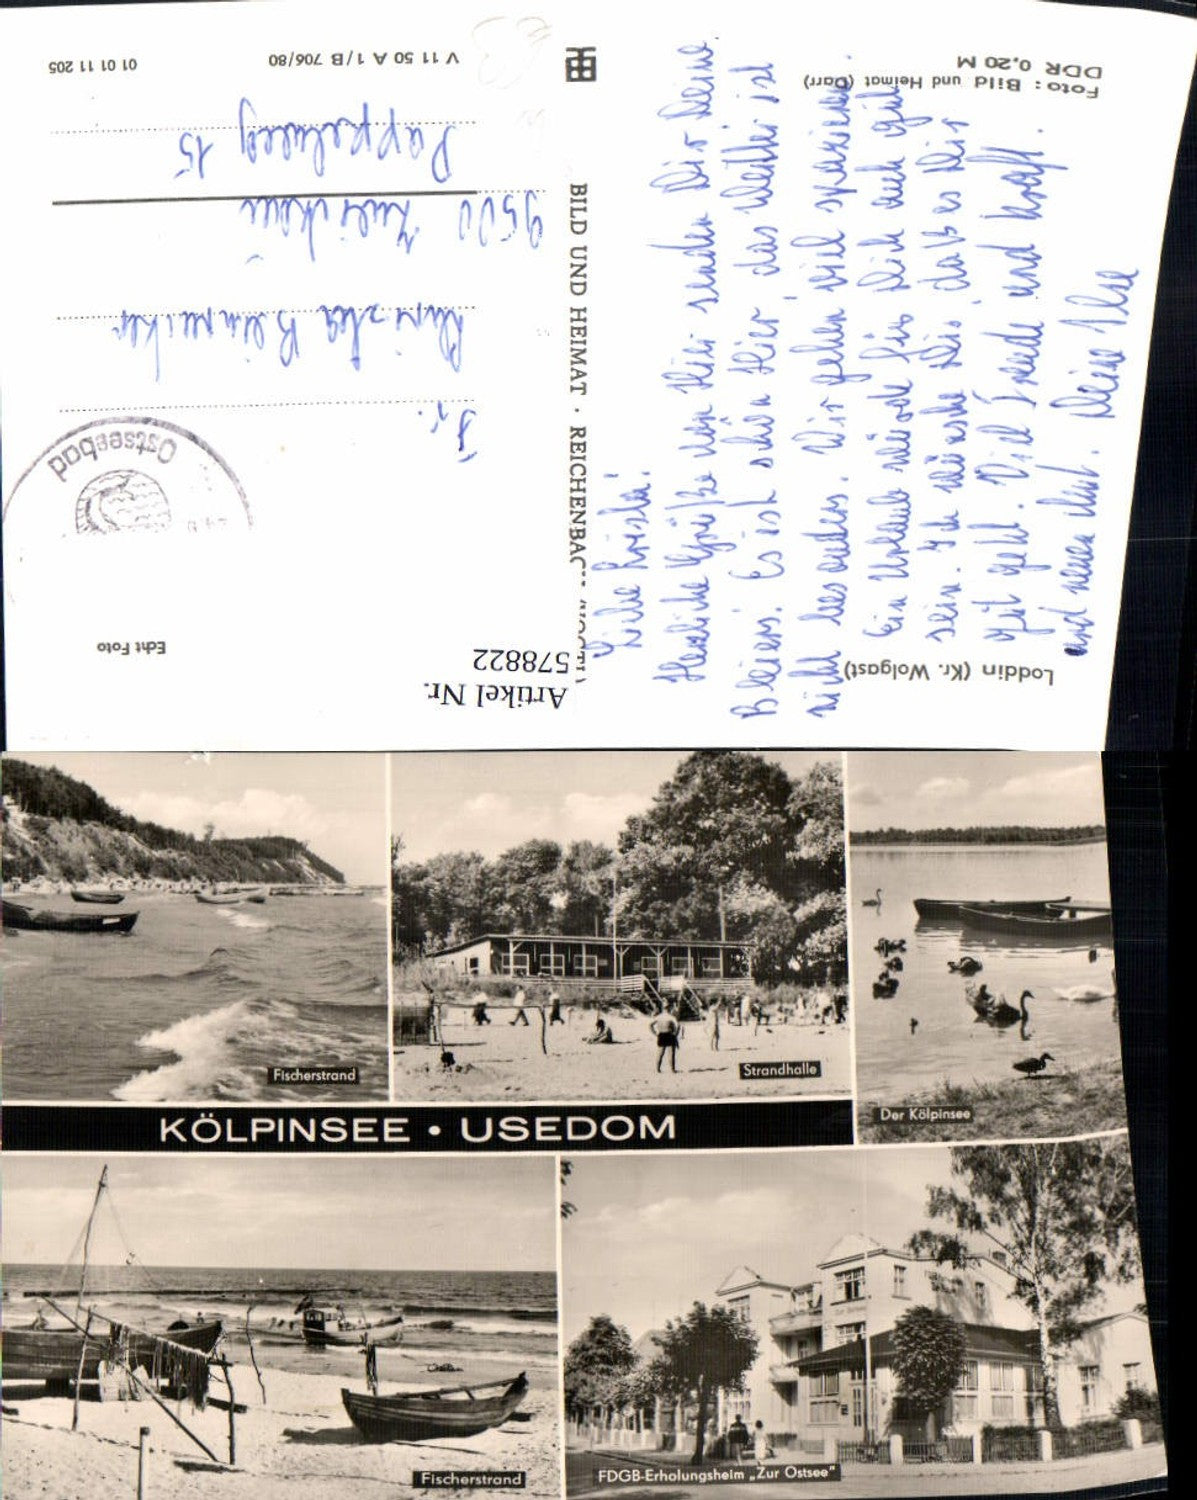 01 01 11 205
V 11 50 A 1/B 706/80
Foto: Bild und Heimat (Darr)
DDR 0,20 M
BILD UND HEIMAT · REICHENBAC
Ostseebad
Echt Foto
Artikel Nr.
578822
Loddin (Kr. Wolgast)
Fr.
Christa
9500 Zwickau
Pappelweg 15
Liebe Christa!
Herzliche Grüße von Hier senden Dir Deine
Es ist schön Hier, das Wetter ist
nicht besonders. Wir gehen viel spazieren.
Ein Urlaub würde für Dich auch gut
sein. Ich wünsche Dir, daß es Dir
gut geht. Viel Freude und Kraft
und neuen Mut. Deine Ilse
Fischerstrand
Strandhalle
Der Kölpinsee
KÖLPINSEE • USEDOM
Fischerstrand
FDGB-Erholungsheim „Zur Ostsee"